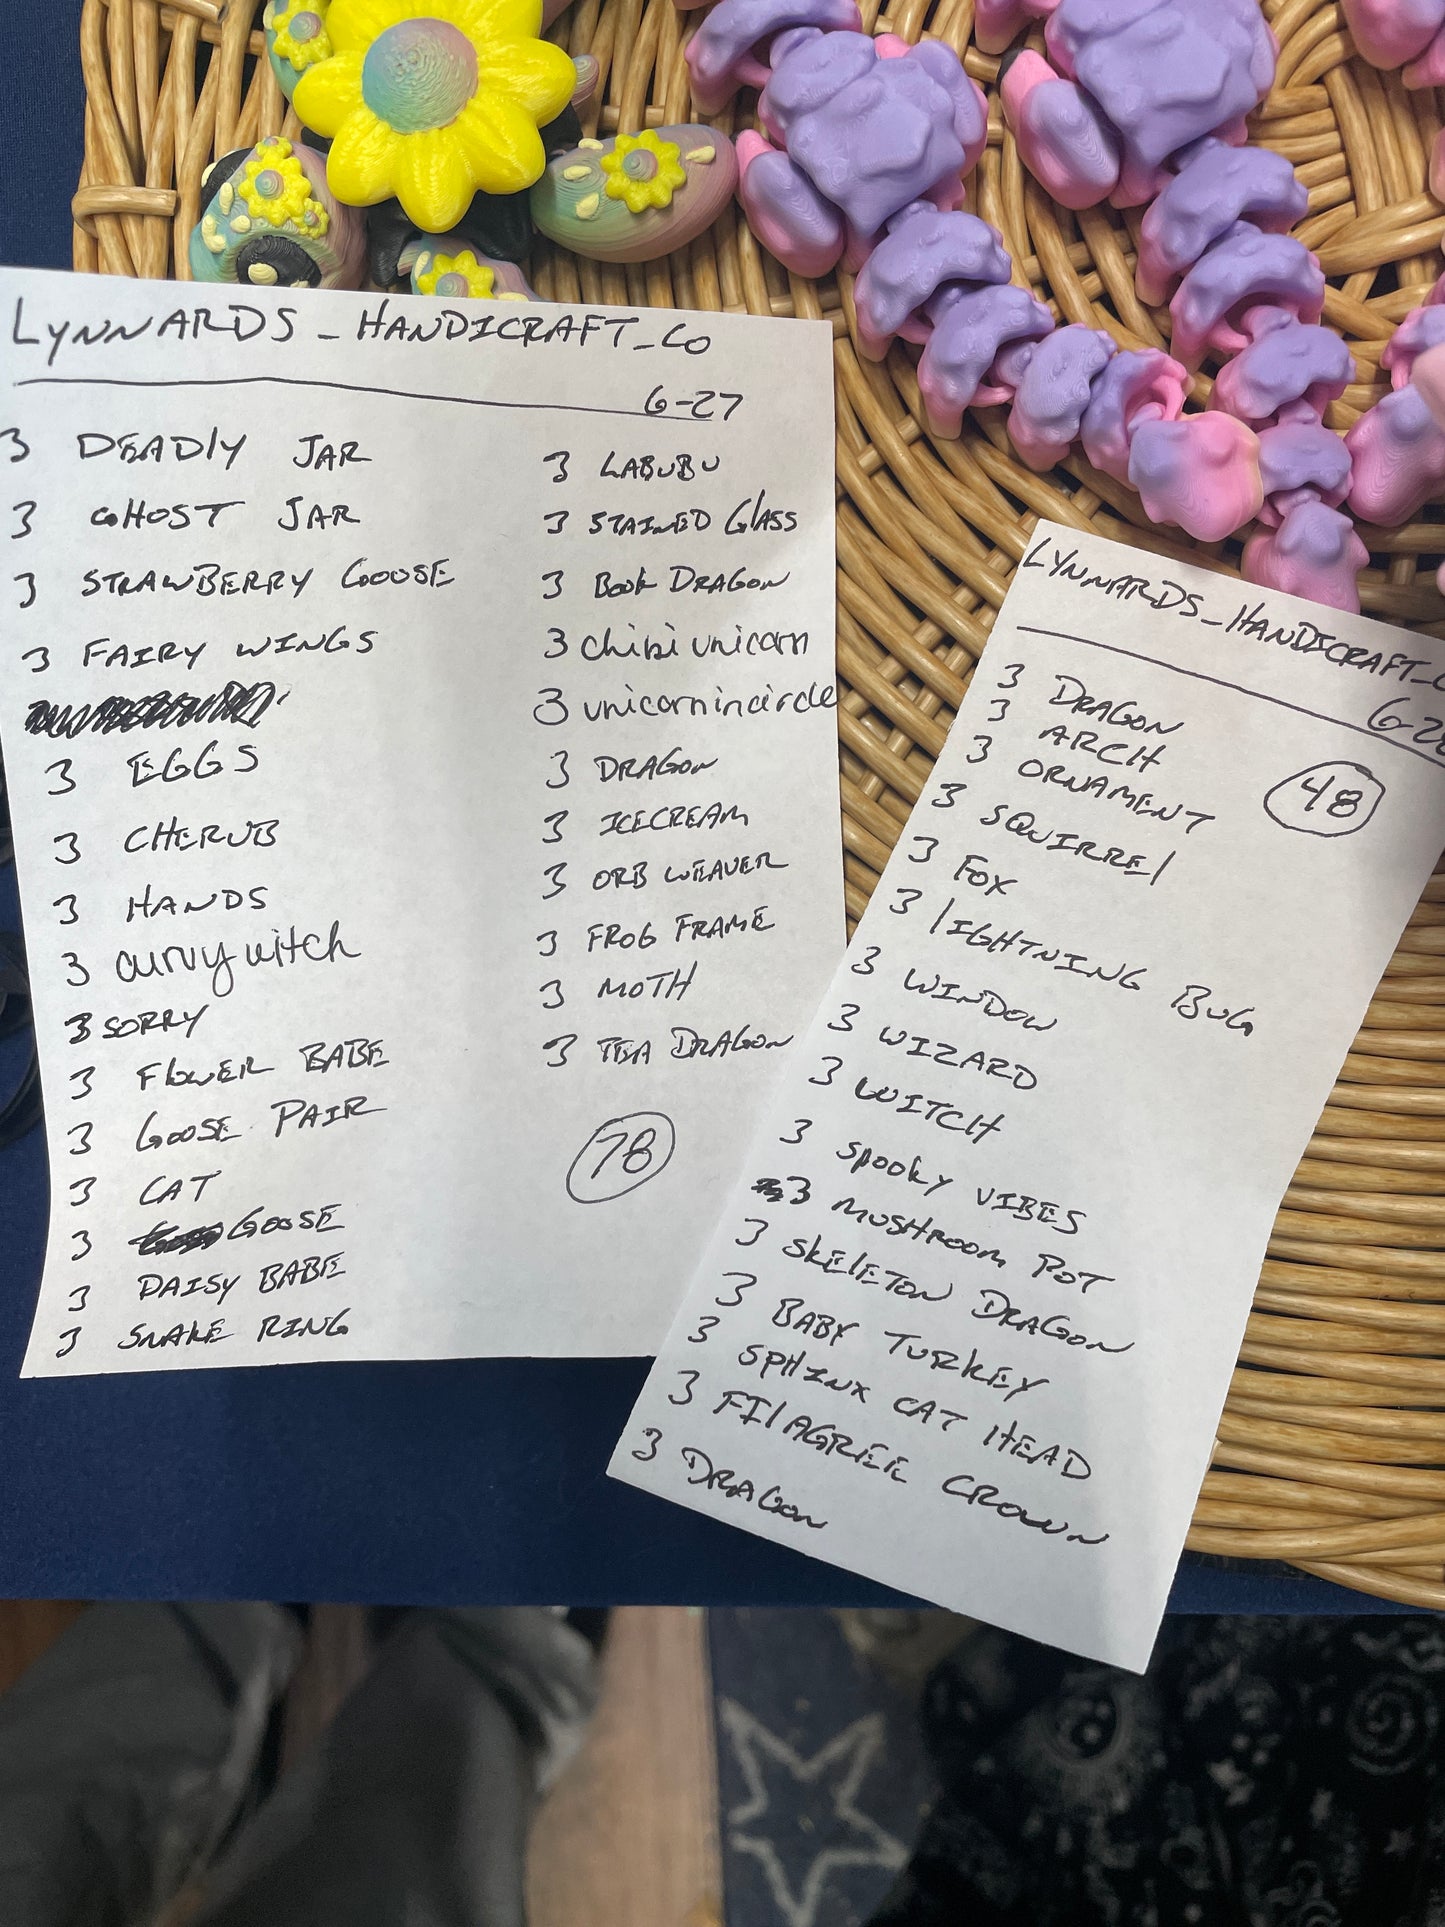 LYNNARDS_HANDICRAFT_CO
6-27
3 DEADLY JAR
3 GHOST JAR
3 STRAWBERRY GOOSE
3 FAIRY WINGS
3 EGGS
3 CHERUB
3 HANDS
3 curvy witch
3 SORRY
3 FLOWER BABE
3 GOOSE PAIR
3 CAT
3 GOOSE
3 DAISY BABE
3 SNAKE RING
3 LABUBU
3 STAINED GLASS
3 BOOK DRAGON
3 chibi unicorn
3 unicorn in circle
3 DRAGON
3 ICECREAM
3 ORB WEAVER
3 FROG FRAME
3 MOTH
3 TEA DRAGON
78
LYNNARDS_HANDICRAFT_
3 DRAGON
3 ARCH
3 ORNAMENT
48
3 SQUIRREL
3 FOX
3 LIGHTNING BUG
3 WINDOW
3 WIZARD
3 WITCH
3 SPOOKY VIBES
3 MUSHROOM POT
3 SKELETON DRAGON
3 BABY TURKEY
3 SPHINX CAT HEAD
3 FILAGREE CROWN
3 DRAGON